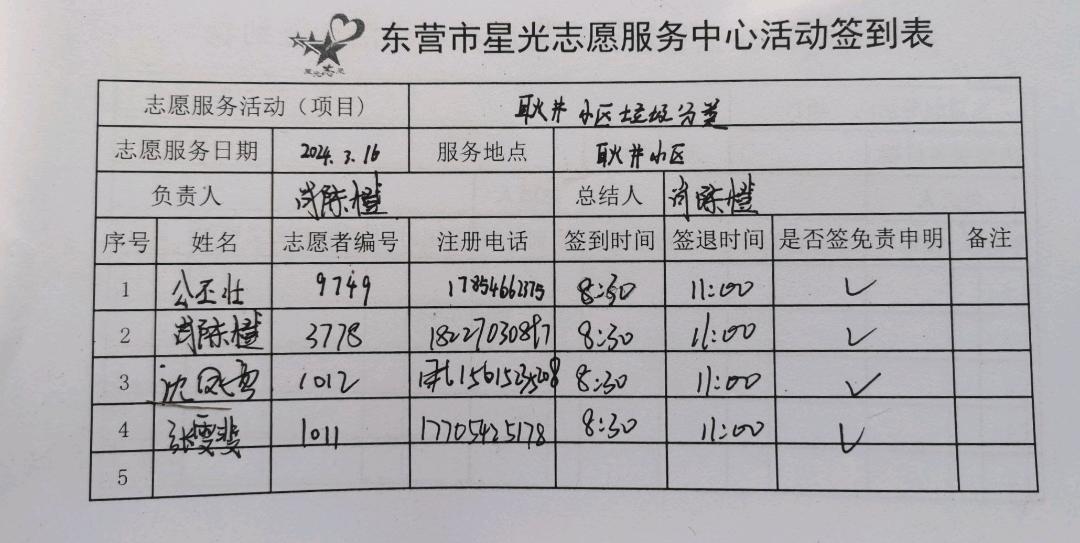 东营市星光志愿服务中心活动签到表
志愿服务活动（项目） 耿井小区垃圾分类
志愿服务日期 2024.3.16 服务地点 耿井小区
负责人 陈橙 总结人 陈橙
序号 姓名 志愿者编号 注册电话 签到时间 签退时间 是否签免责申明 备注
1 公丕壮 9749 17854662375 8:30 11:00 ✓
2 陈橙 3778 8:30 11:00 ✓
3 沈凤 1012 8:30 11:00 ✓
4 张雯斐 1011 17705425178 8:30 11:00 ✓
5